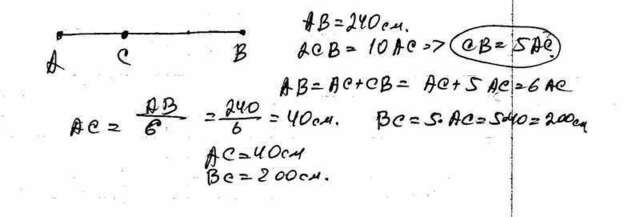 A C B
AB = 240 см.
2CB = 10 AC => CB = 5AC
AB = AC + CB = AC + 5 AC = 6 AC
AC = AB/6 = 240/6 = 40 см. BC = 5·AC = 5·40 = 200 см
AC = 40 см
BC = 200 см.